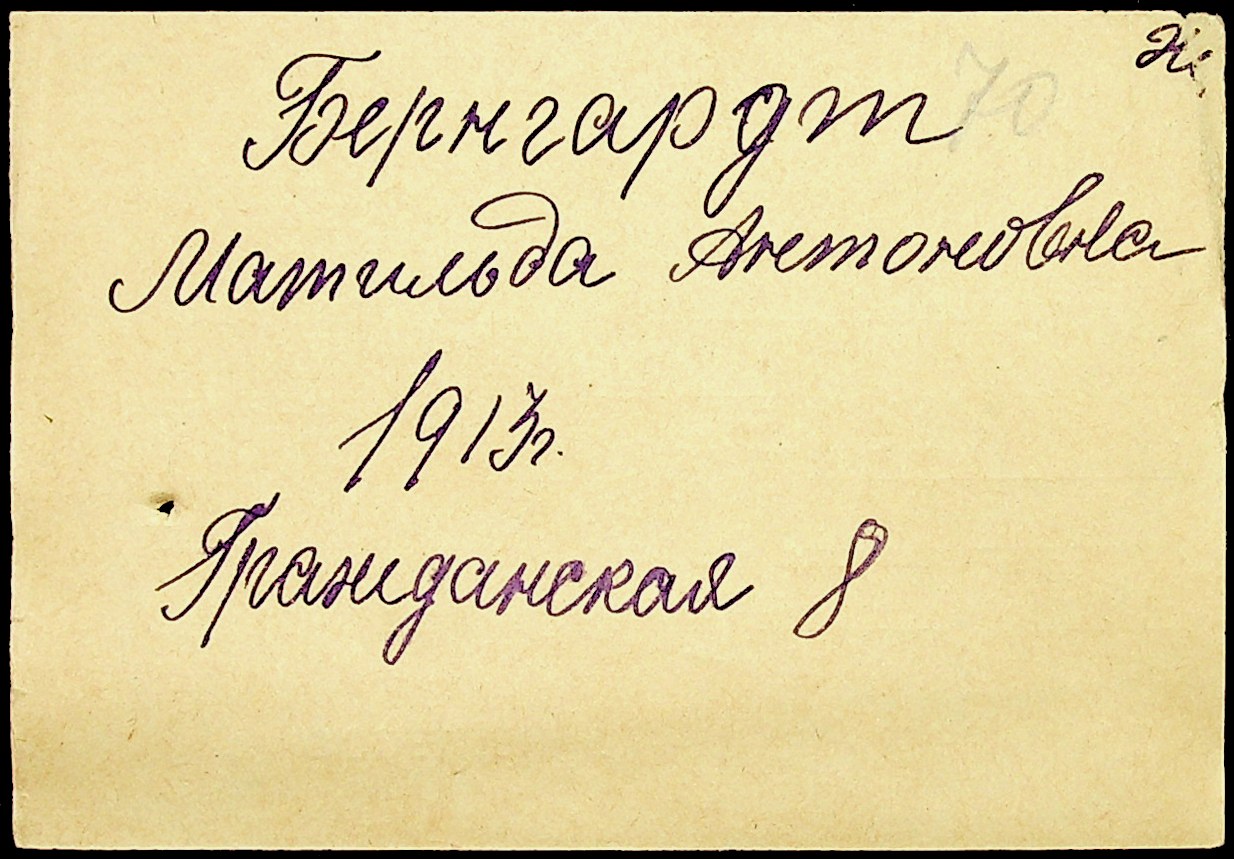 70
Бернгардт
Матильда Антоновна
1913г.
Гражданская 8